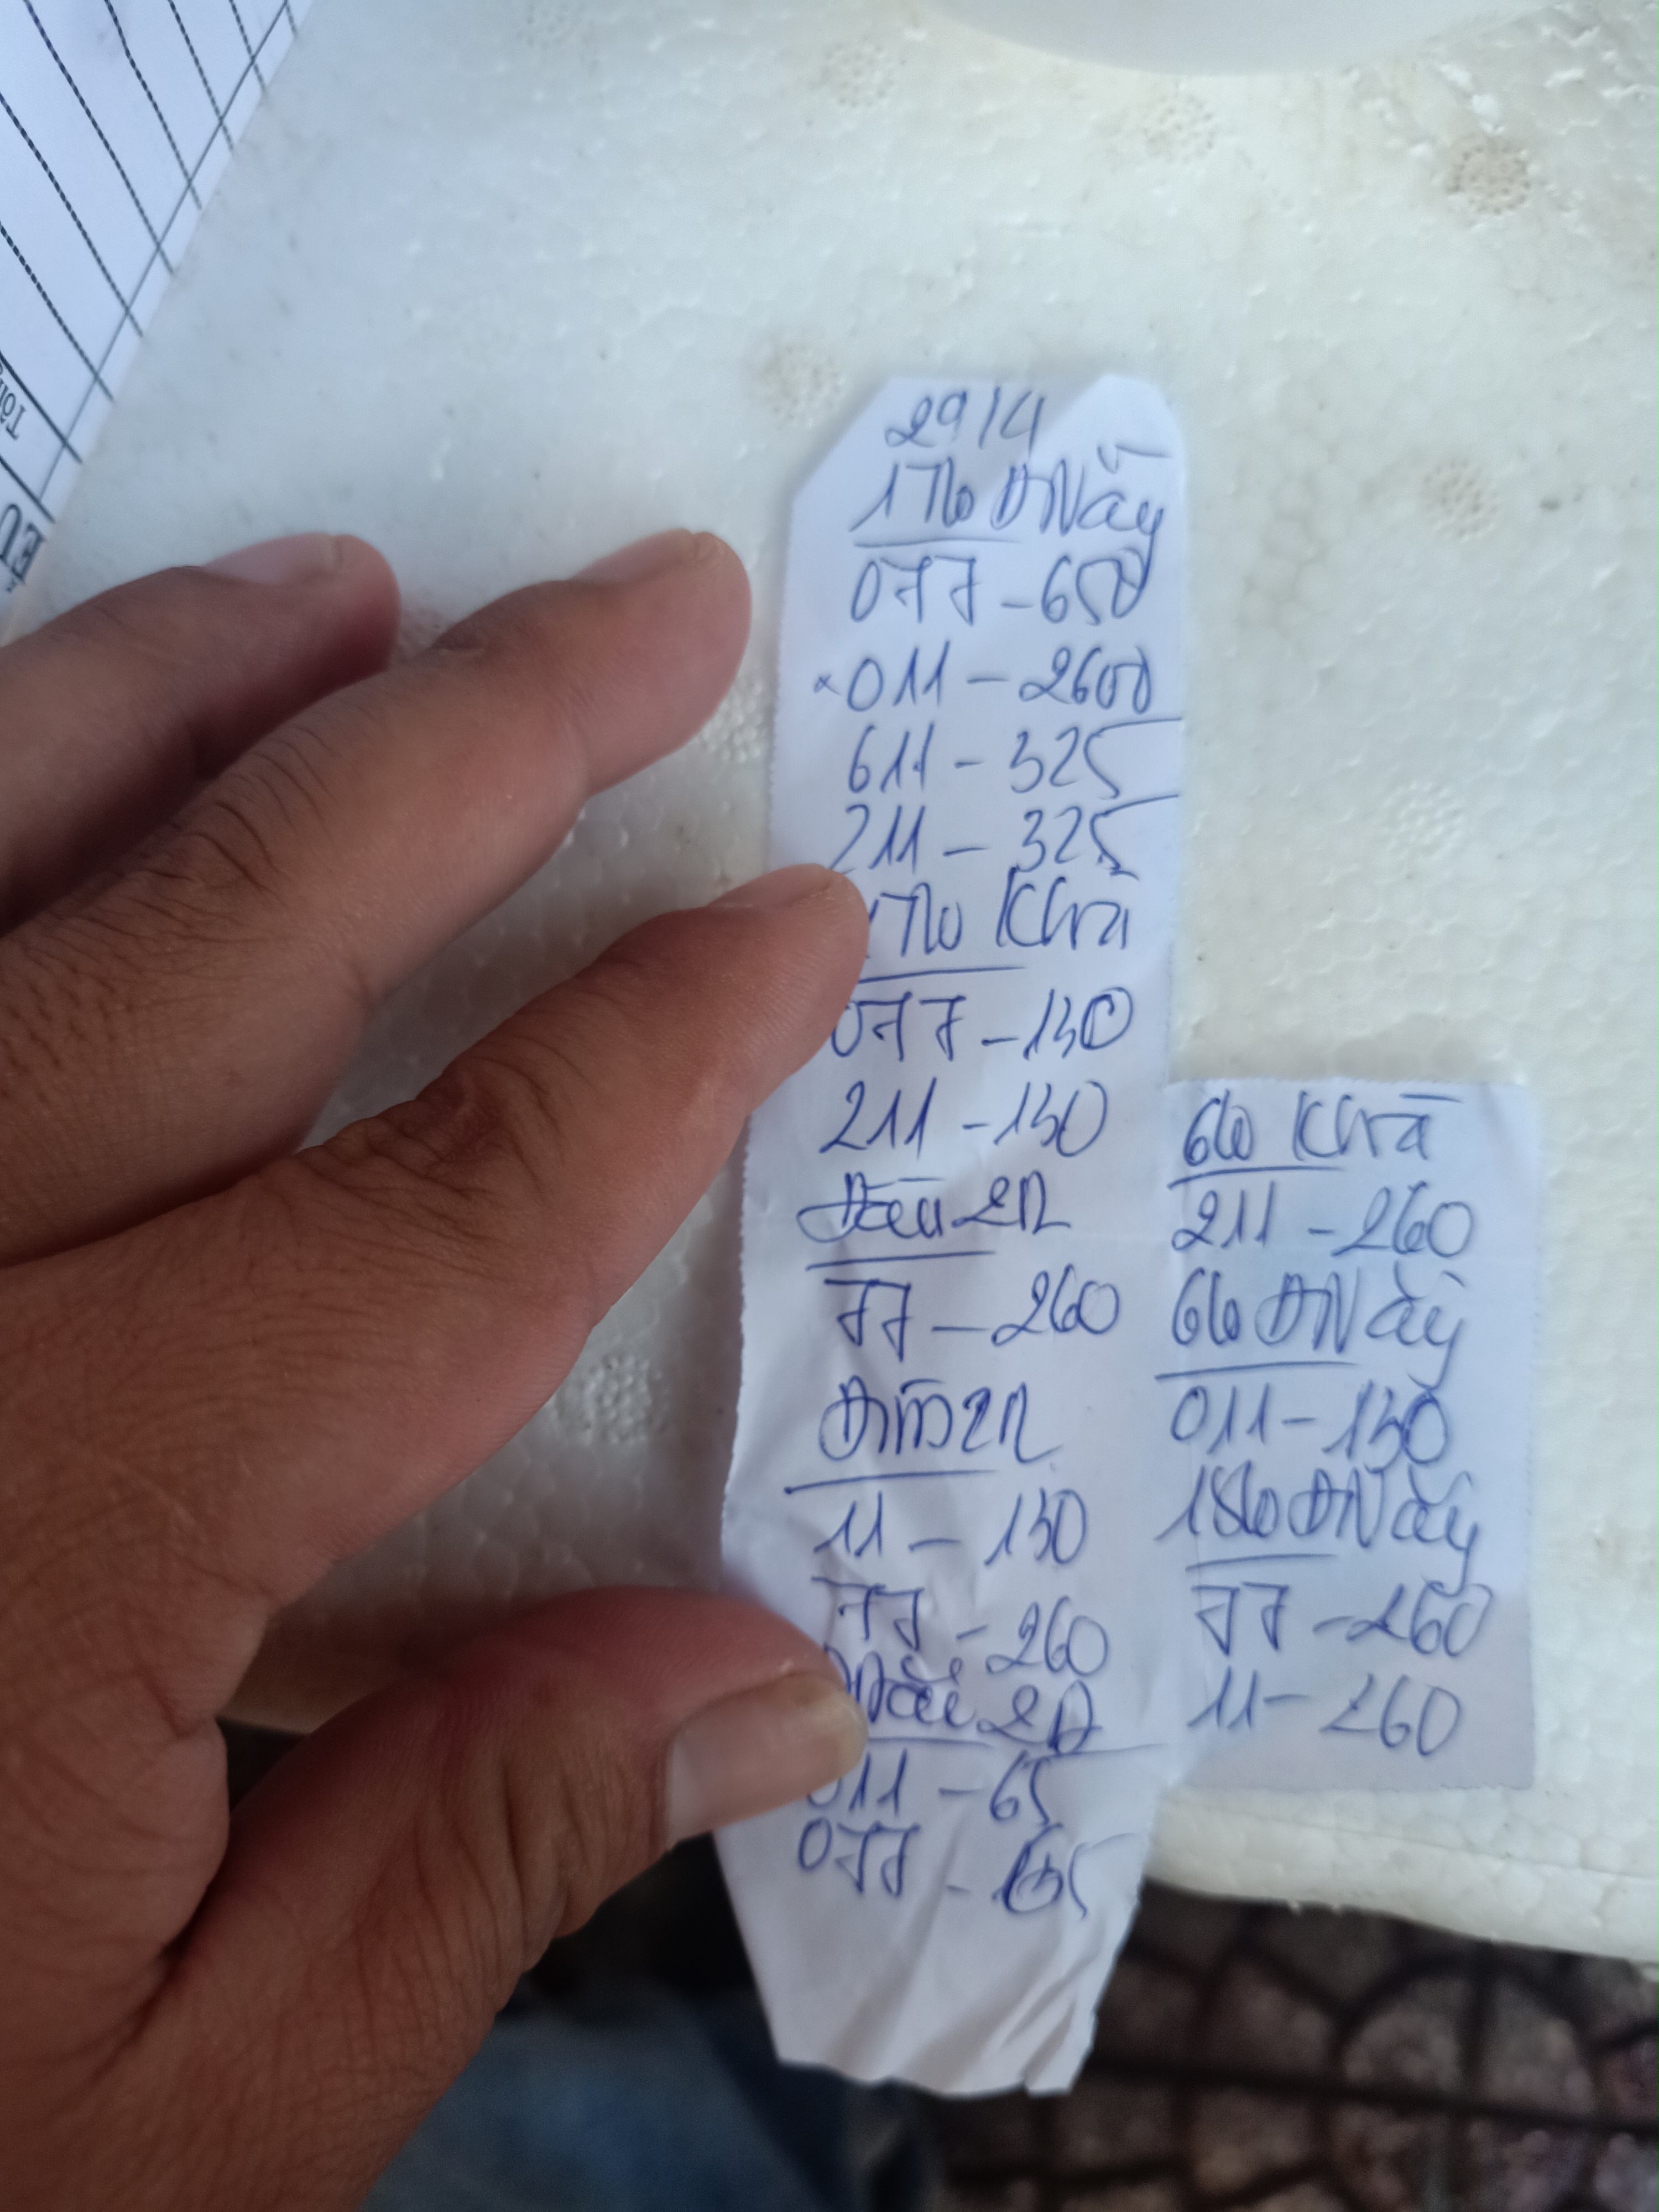 29/4
17lô ĐNẵy
077 - 650
×011 - 2600
611 - 325
211 - 325
17lô Khrā
077 - 130
211 - 130
Đầu 2n
77 - 260
11 - 130
77 - 260
Đài 2Đ
011 - 65
077 - 65
6lô Khrā
211 - 260
6lô ĐNẵy
011 - 130
18lô ĐNẵy
77 - 260
11 - 260